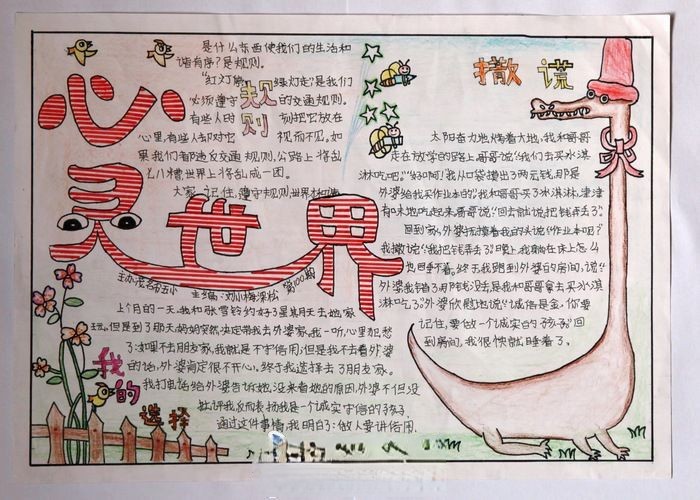 心灵世界
规则
是什么东西使我们的生活和
谐有序?是规则。
"红灯停 绿灯走"是我们
必须遵守 的交通规则。
有些人时 刻把它放在
心里,有些人却对它 视而不见。如
果我们都违反交通规则,公路上将乱
七八糟世界上将乱成一团。
大家 记住,遵守规则,世界
主编:刘小梅 梁松 第100期
我的选择
上个月的一天,我和张雪铃约好了星期天去她家
玩。但是到了那天,妈妈突然决定带我去外婆家。我一听,心里犯愁
了:如果不去朋友家,我就是不守信用,但是我不去看外婆
的话,外婆肯定很不开心。终于我选择去了朋友家。
我打电话给外婆告诉她,没来看她的原因,外婆不但没
批评我,反而表扬我是一个诚实守信的孩子。
通过这件事情,我明白了:做人要讲信用。
撒谎
太阳奋力地烤着大地,我和哥哥
走在放学的路上,哥哥说:"我们去买冰淇
淋吃吧。""好啊!我从口袋摸出了两元钱,那是
外婆给我买作业本的。"我和哥哥买了冰淇淋,津津
有味地吃起来,哥哥说:"回去就说把钱弄丢了。"
回到家,外婆抚摸着我的头说:"作业本呢?"
我撒说:"我把钱弄丢了。"晚上,我躺在床上怎么
也睡不着。终于我跑到外婆的房间,说:"
外婆我错了,那钱没丢,是我和哥哥拿去买冰淇
淋吃了。"外婆欣慰地说:"诚信是金,你要
记住,要做一个诚实的孩子。"回
到房间,我很快就睡着了。